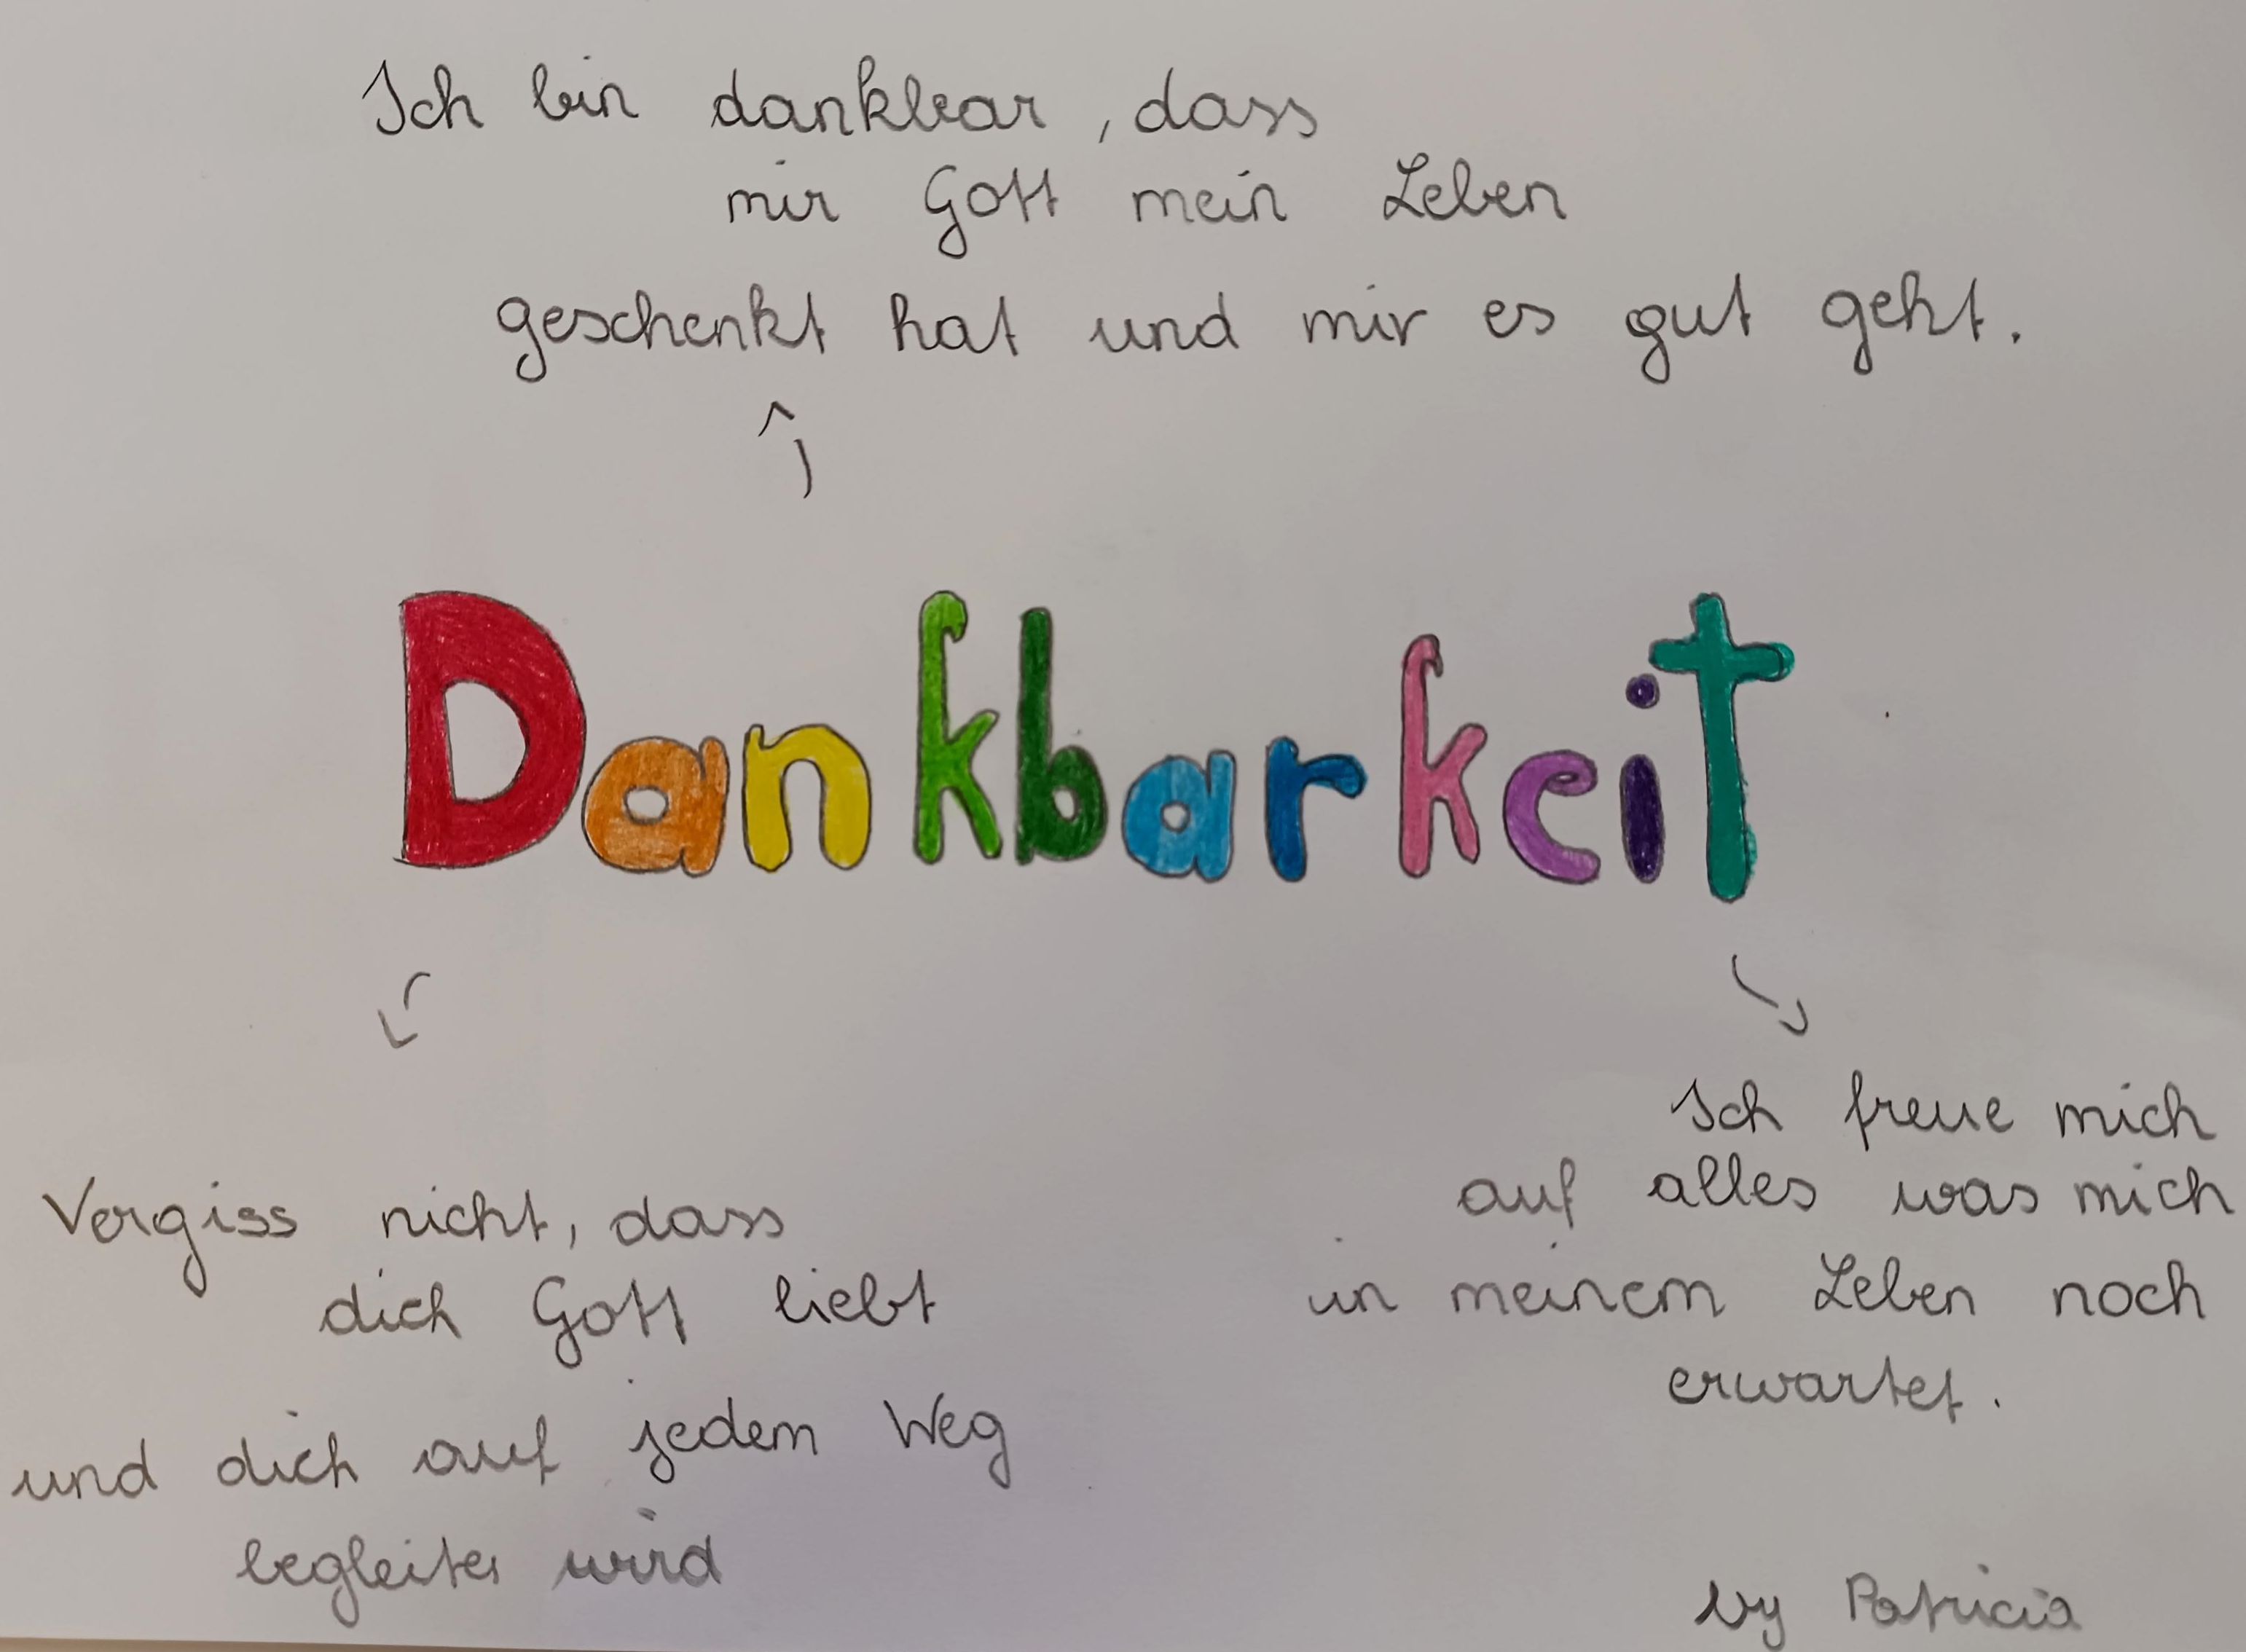 Ich bin dankbar, dass
mir Gott mein Leben
geschenkt hat und mir es gut geht.
Dankbarkeit
Vergiss nicht, dass
dich Gott liebt
und dich auf jedem Weg
begleitet wird
Ich freue mich
auf alles was mich
in meinem Leben noch
erwartet.
by Patricia